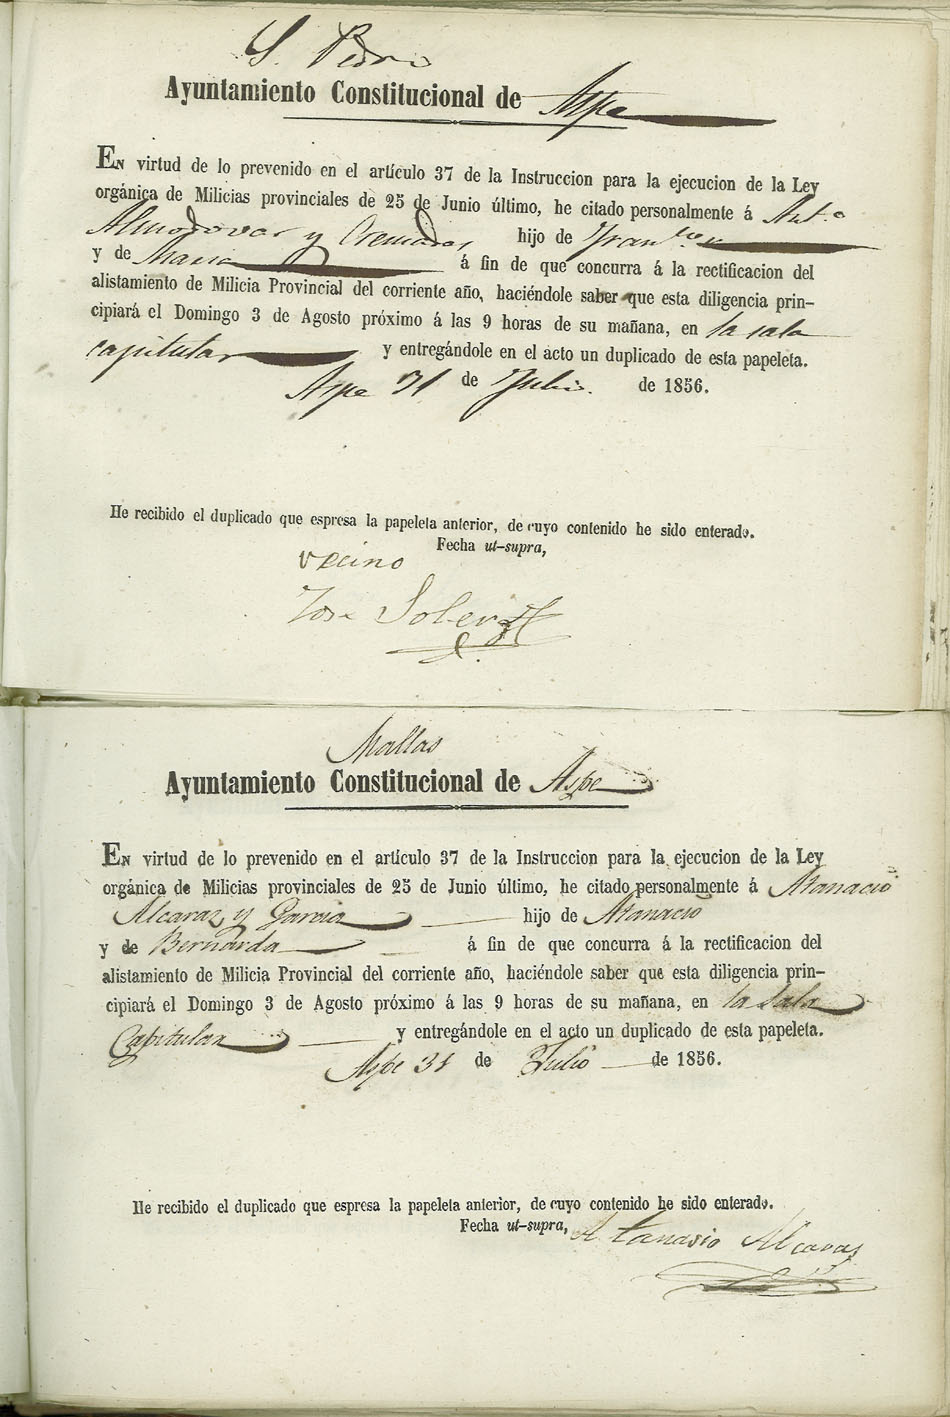 S. Pedro
Ayuntamiento Constitucional de Aspe
En virtud de lo prevenido en el artículo 37 de la Instruccion para la ejecucion de la Ley
orgánica de Milicias provinciales de 25 de Junio último, he citado personalmente á Ant.º
Almodovar y Cremades hijo de Fran.co
y de Maria á fin de que concurra á la rectificacion del
alistamiento de Milicia Provincial del corriente año, haciéndole saber que esta diligencia prin-
cipiará el Domingo 3 de Agosto próximo á las 9 horas de su mañana, en la sala
capitular y entregándole en el acto un duplicado de esta papeleta.
Aspe 31 de Julio. de 1856.
He recibido el duplicado que espresa la papeleta anterior, de cuyo contenido he sido enterado.
Fecha ut-supra,
vecino
Jose Soler
Mallas
Ayuntamiento Constitucional de Aspe
En virtud de lo prevenido en el artículo 37 de la Instruccion para la ejecucion de la Ley
orgánica de Milicias provinciales de 25 de Junio último, he citado personalmente á Atanacio
Alcaraz y Garcia hijo de Atanacio
y de Bernarda á fin de que concurra á la rectificacion del
alistamiento de Milicia Provincial del corriente año, haciéndole saber que esta diligencia prin-
cipiará el Domingo 3 de Agosto próximo á las 9 horas de su mañana, en la Sala
Capitular y entregándole en el acto un duplicado de esta papeleta.
Aspe 31 de Julio de 1856.
He recibido el duplicado que espresa la papeleta anterior, de cuyo contenido he sido enterado.
Fecha ut-supra, Atanasio Alcaraz